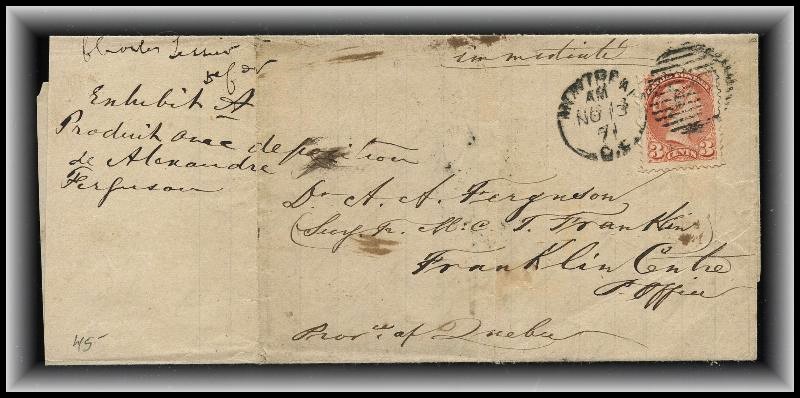 Charles Tessier
Exhibit A
Produit avec deposition
de Alexandre
Ferguson
45
immediate
MONTREAL
AM
NO 13
71
Q.E.
3 CENTS 3
Dr A. A. Ferguson
(Secy. Tr. M: C. T. Franklin)
Franklin Centre
P. Office
Prov.ce of Quebec